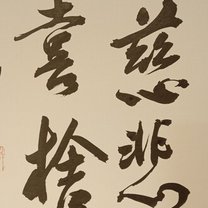 慈悲
喜捨